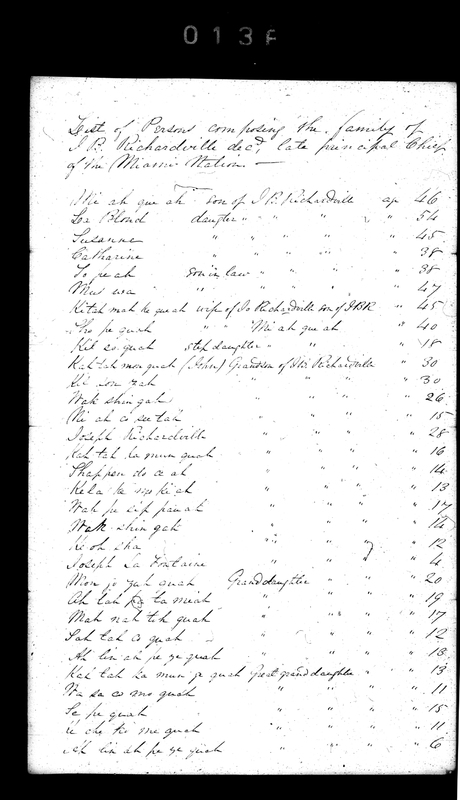 013F
List of Persons composing the family of
J. B. Richardville decd. late principal Chief
of the Miami Nation —
Mi ah que ah son of J B. Richardville age 46
La Blond daughter " " " " 54
Susanne " " " " 45
Catharine " " " " 38
To pe ah son in law " " " 38
Mus wa " " " " " 47
Kitah mah ke quah wife of Jo Richardville son of JBR " 45
Sho pe quah " " Mi ah que ah " 40
Kil so quah step daughter " " " 18
Kah tah mon quah (John) Grandson of JB. Richardville " 30
Ke son zah " " " " 30
Wak shin gah " " " " 26
Mi ah co see tah " " " " 15
Joseph Richardville " " " " 28
Kah tah ka mun guah " " " " 16
Shappen do ce ah " " " " 14
Kela ke mo ki ah " " " " 13
Wah pe sip pan ah " " " " 17
Wak shin gah " " " " 14
Ke oh sha " " " " 12
Joseph La Fontaine " " " " 4
Mon go zah quah Granddaughter " " " 20
Ah tah pa ta miah " " " " 19
Mah nah teh quah " " " " 17
Sah tah co quah " " " " 12
Ah lin ah pe ze quah " " " " 18
Kah tah ka mun ge quah Great granddaughter " " " 13
Wa sa co mo quah " " " " 11
Se pe quah " " " " 15
" " " " 11
Ah lin ah pe ze quah " " " " 6